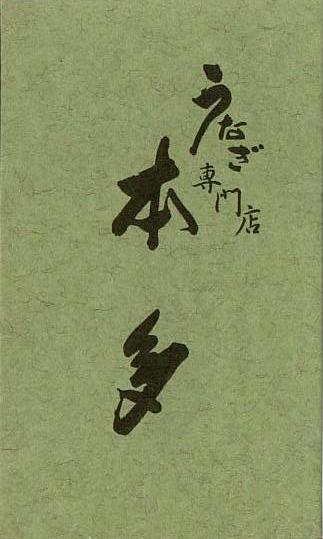 うなぎ専門店
本多